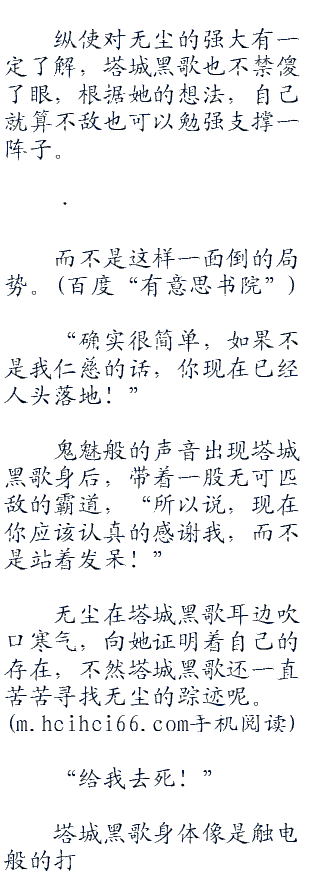 纵使对无尘的强大有一
定了解，塔城黑歌也不禁傻
了眼，根据她的想法，自己
就算不敌也可以勉强支撑一
阵子。
.
而不是这样一面倒的局
势。(百度“有意思书院”)
“确实很简单，如果不
是我仁慈的话，你现在已经
人头落地！”
鬼魅般的声音出现塔城
黑歌身后，带着一股无可匹
敌的霸道，“所以说，现在
你应该认真的感谢我，而不
是站着发呆！”
无尘在塔城黑歌耳边吹
口寒气，向她证明着自己的
存在，不然塔城黑歌还一直
苦苦寻找无尘的踪迹呢。
(m.hcihci66.com手机阅读)
“给我去死！”
塔城黑歌身体像是触电
般的打